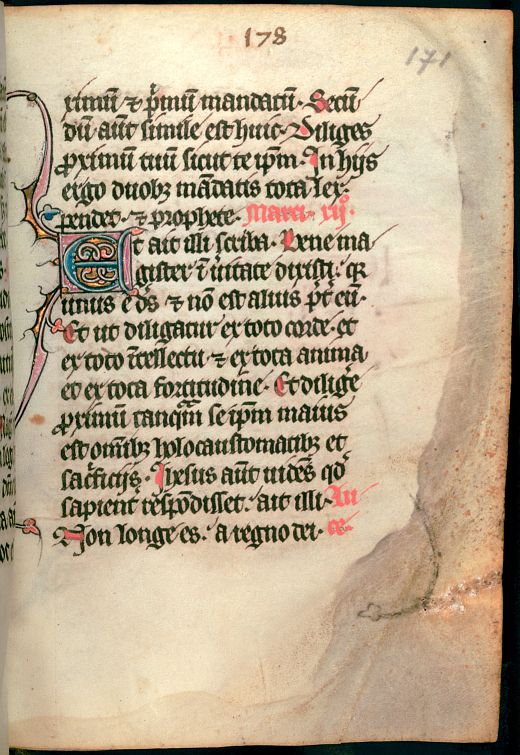 178
171
ximũ ⁊ p̃mũ mandatũ. Secũ
dũ aũt simile est huic. Diliges
proximũ tuũ sicut te ip̃m. In hijs
ergo duobꝫ mãdatis tota lex.
pendet ⁊ prophete. Marci. xijͦ.
Et ait illi scriba. Bene ma
gister ĩ ũitate dixisti. qꝛ
unus ẽ dẽs ⁊ nõ est alius p̃t eũ.
Et ut diligatur ex toto corde. et
ex toto ĩtellectu ⁊ ex tota anima
et ex tota fortitudine. Et diligẽ
proximũ tanq̃m se ip̃m maius
est om̃ibꝫ holocaustomatibꝫ et
sac̃ficijs. Ihesus aũt uidẽs qd̃
sapient̃ respõdisset. ait illi.
Non longe es. a regno dei.